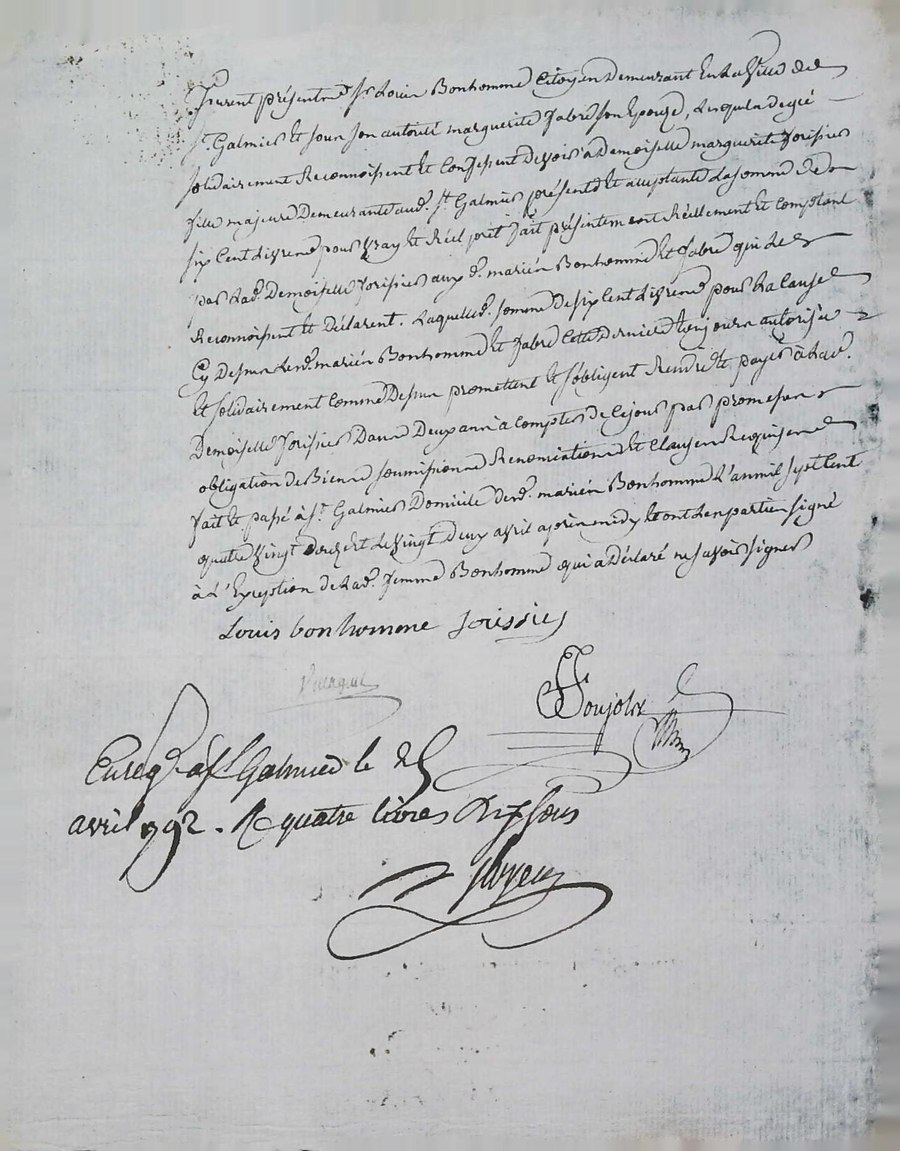 Furent présents Sr. Louis Bonhomme Citoyen Demeurant En La Ville de
St. Galmier et sous son autorité marguerite fabre son Epouse, Lesquels de gré
solidairement Reconnoissent et Confessent devoir a Demoiselle marguerite
fille majeure Demeurante aud. St. Galmier présente et acceptante La somme de
six Cent Livres pour vray et Réel prêt fait présentement Réellement et comptant
par Lad. Demoiselle aux d. mariés Bonhomme et fabre qui Le
Reconnoissent et Déclarent. Laquelle d. somme de six Cent Livres pour La Cause
Cy Dessus Les d. mariés Bonhomme et fabre Cette Derniere toujours autorisée
et solidairement Comme Dessus promettent et s'obligent Rendre et payer à Lad.
Demoiselle Dans Deux ans à Compter de Ce jour par promesses
obligation de Biens soumissions Renonciations et Clauses Requises
fait et passé à St. Galmier Domicile des d. mariés Bonhomme L'an mil sept Cent
quatre vingt douze et Le vingt deux avril après midy et ont Les parties signé
à L'Exception de Lad. femme Bonhomme qui a Déclaré ne savoir signer
Louis bonhomme
Enreg. a St Galmier le 25
avril 1792. R quatre livres Dix sous